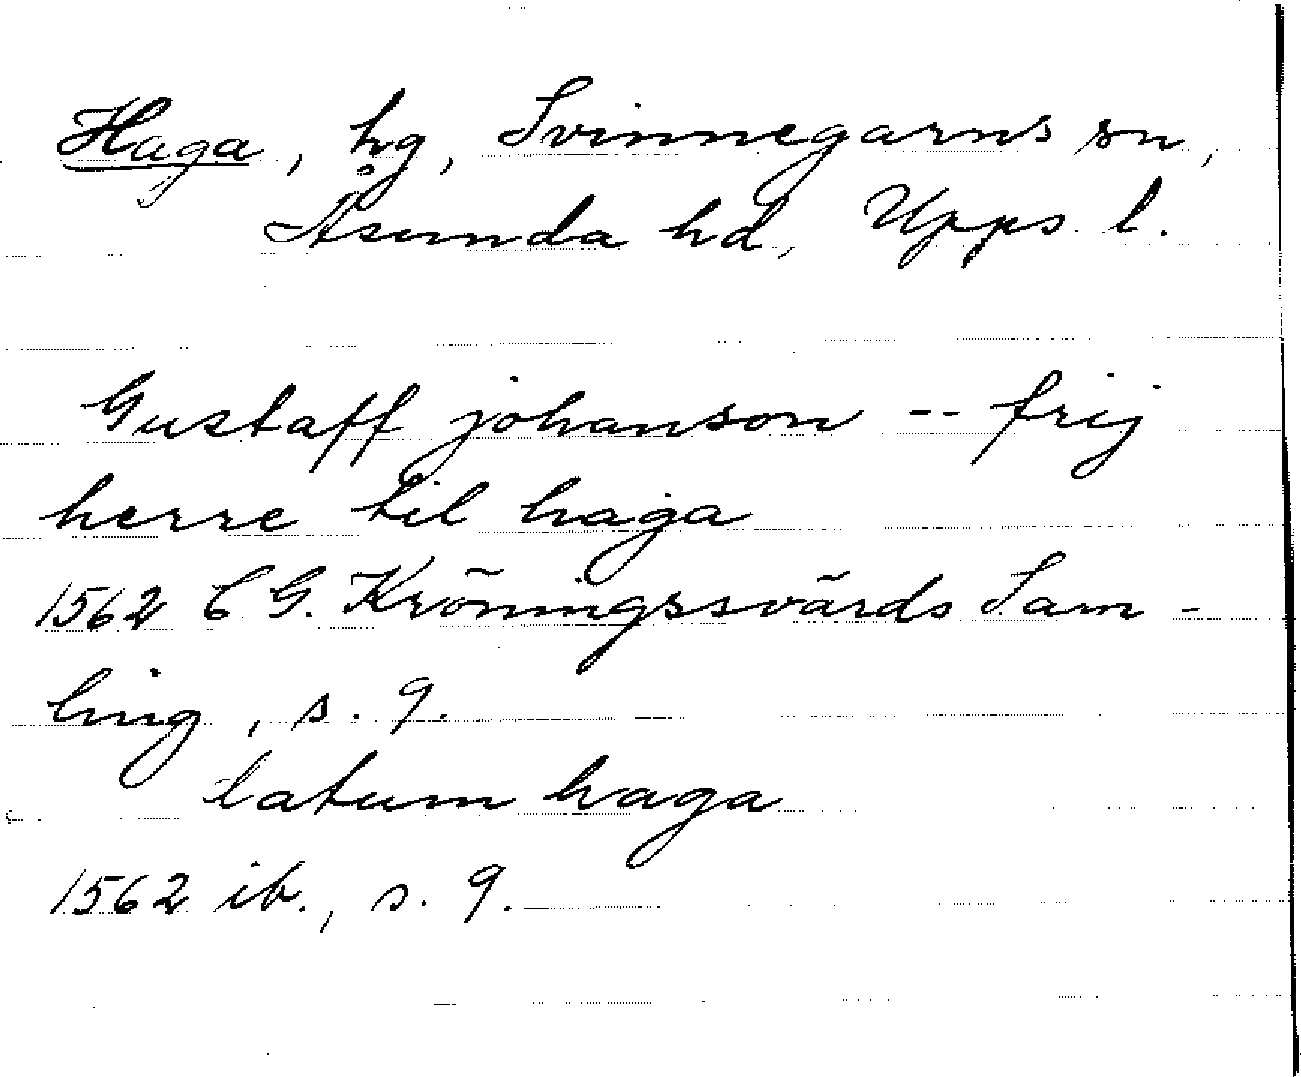 Haga, hg, Svinnegarns sn,
Åsunda hd, Upps. l.
Gustaff johanson -- frij
herre til haga
1562 C G. Kröningssvärds Sam-
ling, s. 9.
latum haga
1562 ib., s. 9.